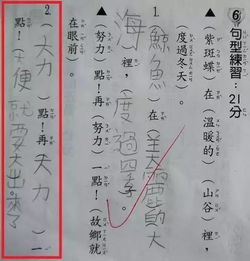 ⑥句型練習:21分
▲(紫斑蝶)在(溫暖的)(山谷)裡,
度過冬天)。
1.(鯨魚)在(寬闊的大
海)裡,(度過四季)。
▲(努力)一點!再(努力)一點!(故鄉就
在眼前)。
2.(大力)一點!再(大力)一
點!(大便就要大出來了